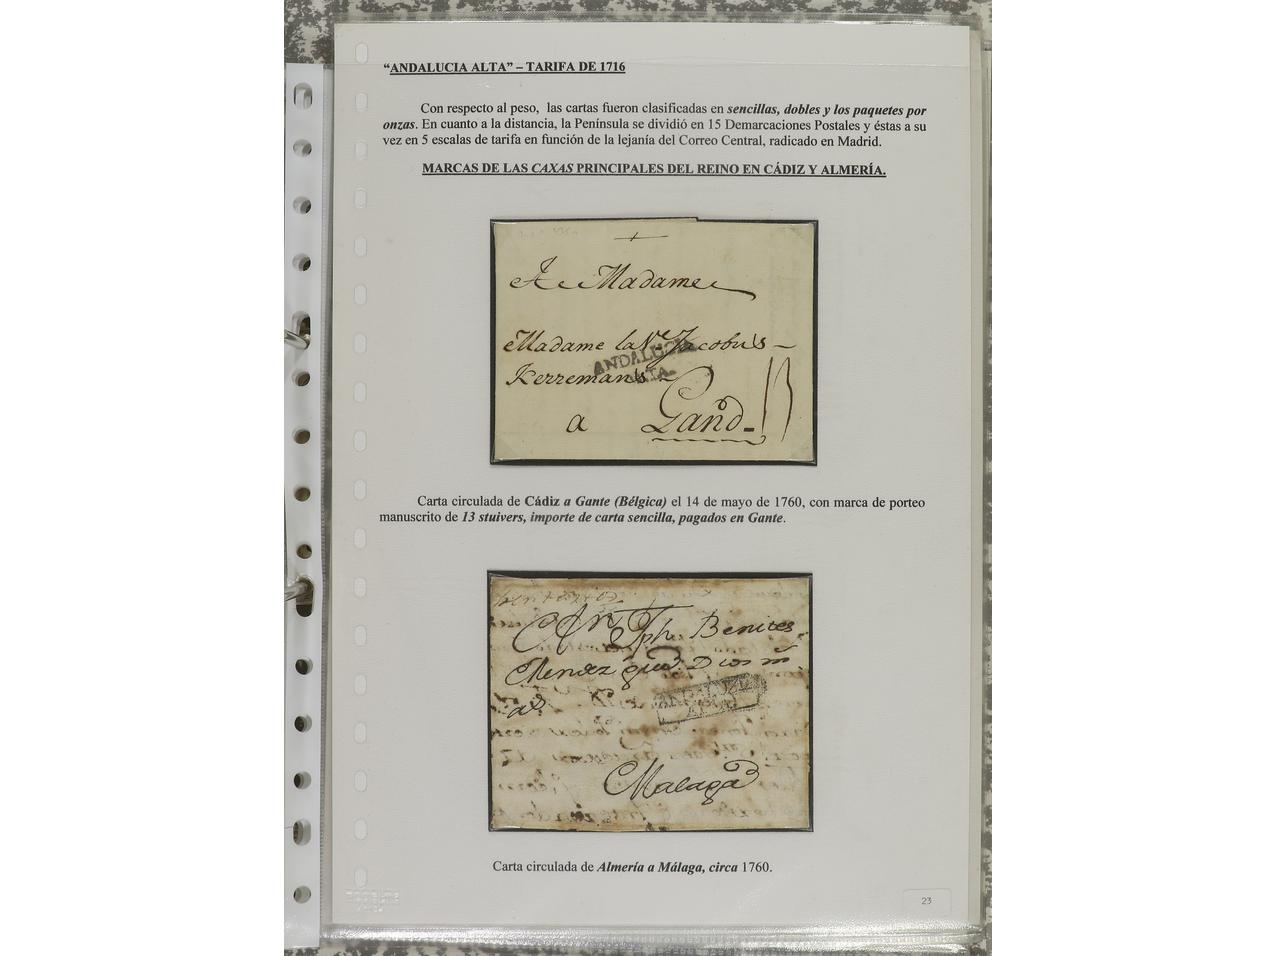 “ANDALUCIA ALTA” – TARIFA DE 1716
Con respecto al peso, las cartas fueron clasificadas en sencillas, dobles y los paquetes por
onzas. En cuanto a la distancia, la Península se dividió en 15 Demarcaciones Postales y éstas a su
vez en 5 escalas de tarifa en función de la lejanía del Correo Central, radicado en Madrid.
MARCAS DE LAS CAXAS PRINCIPALES DEL REINO EN CÁDIZ Y ALMERÍA.
A Madame
Madame la Ve Jacobus
ANDALUCIA
ALTA
Kerremans
a Gand 13
Carta circulada de Cádiz a Gante (Bélgica) el 14 de mayo de 1760, con marca de porteo
manuscrito de 13 stuivers, importe de carta sencilla, pagados en Gante.
Jph. Benites
Dios
ANDALUZIA
ALTA
Malaga
Carta circulada de Almería a Málaga, circa 1760.
23